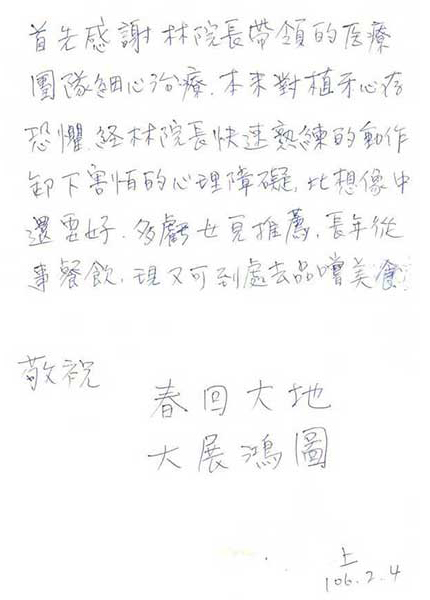 首先感謝林院長帶領的医療
團隊細心治療.本來對植牙心存
恐懼.経林院長快速熟練的動作
卸下害怕的心理障礙,比想像中
還要好.多虧女兒推薦,長年從
事餐飲,現又可到處去品嚐美食
敬祝
春回大地
大展鴻圖
上
106.2.4